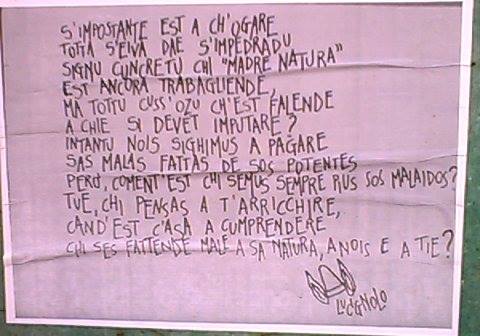 S'IMPOSTANTE EST A CH'OGARE
TOTTA S'EIVA DAE S'IMPEDRADU
SIGNU CUNCRETU CHI "MADRE NATURA"
EST ANCORA TRABAGLIENDE,
MA TOTTU CUSS'OZU CH'EST FALENDE
A CHIE SI DEVET IMPUTARE?
INTANTU NOIS SIGHIMUS A PAGARE
SAS MALAS FATTAS DE SOS POTENTES
PERÒ, COMENT'EST CHI SEMUS SEMPRE RUS SOS MALAIDOS?
TUE, CHI PENSAS A T'ARRICCHIRE,
CAND'EST C'ASA A CUMPRENDERE
CHI SES FATTENDE MALE A SA NATURA, A NOIS E A TIE?
LUCIGNOLO